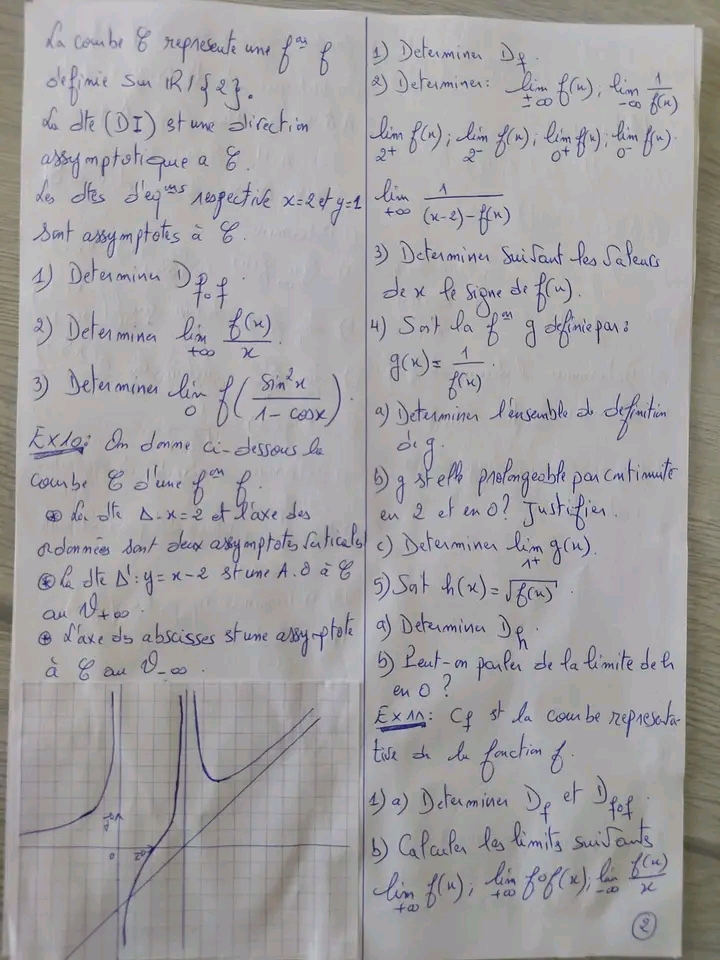 La courbe ℰ represente une fᵒⁿ f
definie sur ℝ/{2}.
La dte (DI) est une direction
assymptotique a ℰ.
Les dtes d'eqᵘⁿˢ respective x=2 et y=1
sont assymptotes à ℰ.
1) Determiner D_fof.
2) Determiner lim_+∞ f(x)/x.
3) Determiner lim_0 f(sin²x/(1-cosx)).
Ex10: On donne ci-dessous la
courbe ℰ d'une fᵒⁿ f.
⊛ La dte Δ: x=2 et l'axe des
ordonnées sont deux assymptotes verticales
⊛ La dte Δ': y=x-2 est une A.O à ℰ
au V_+∞.
⊛ L'axe des abscisses est une assymptote
à ℰ au V_-∞.
0
1) Determiner D_f.
2) Determiner: lim_±∞ f(x); lim_-∞ 1/f(x)
lim_2⁺ f(x); lim_2⁻ f(x); lim_0⁺ f(x); lim_0⁻ f(x).
lim_+∞ 1/((x-2)-f(x))
3) Determiner suivant les valeurs
de x le signe de f(x).
4) Soit la fᵒⁿ g definie par:
g(x)=1/f(x).
a) Determiner l'ensemble de definition
de g.
b) g est elle prolongeable par continuite
en 2 et en 0? Justifier.
c) Determiner lim_1⁺ g(x).
5) Soit h(x)=√f(x).
a) Determiner D_h.
b) Peut-on parler de la limite de h
en 0?
Ex11: Cf est la courbe representa-
tive de la fonction f.
1) a) Determiner D_f et D_fof.
b) Calculer les limits suivants
lim_+∞ f(x); lim_+∞ fof(x); lim_-∞ f(x)/x
2